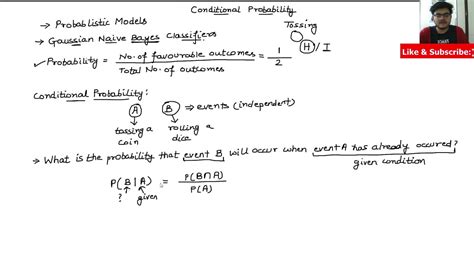 Conditional Probability
→ Probablistic Models
→ Gaussian Naive Bayes Classifiers
Tossing
H/I
✓ Probability = No. of favourable outcomes / Total No. of outcomes = 1/2
Like & Subscribe:)
Conditional Probability:
A B ⇒ events (independent)
tossing a coin
rolling a dice
→ What is the probability that event B, will occur when event A has already occured?
given condition
P(B|A) = P(B∩A) / P(A)
? given